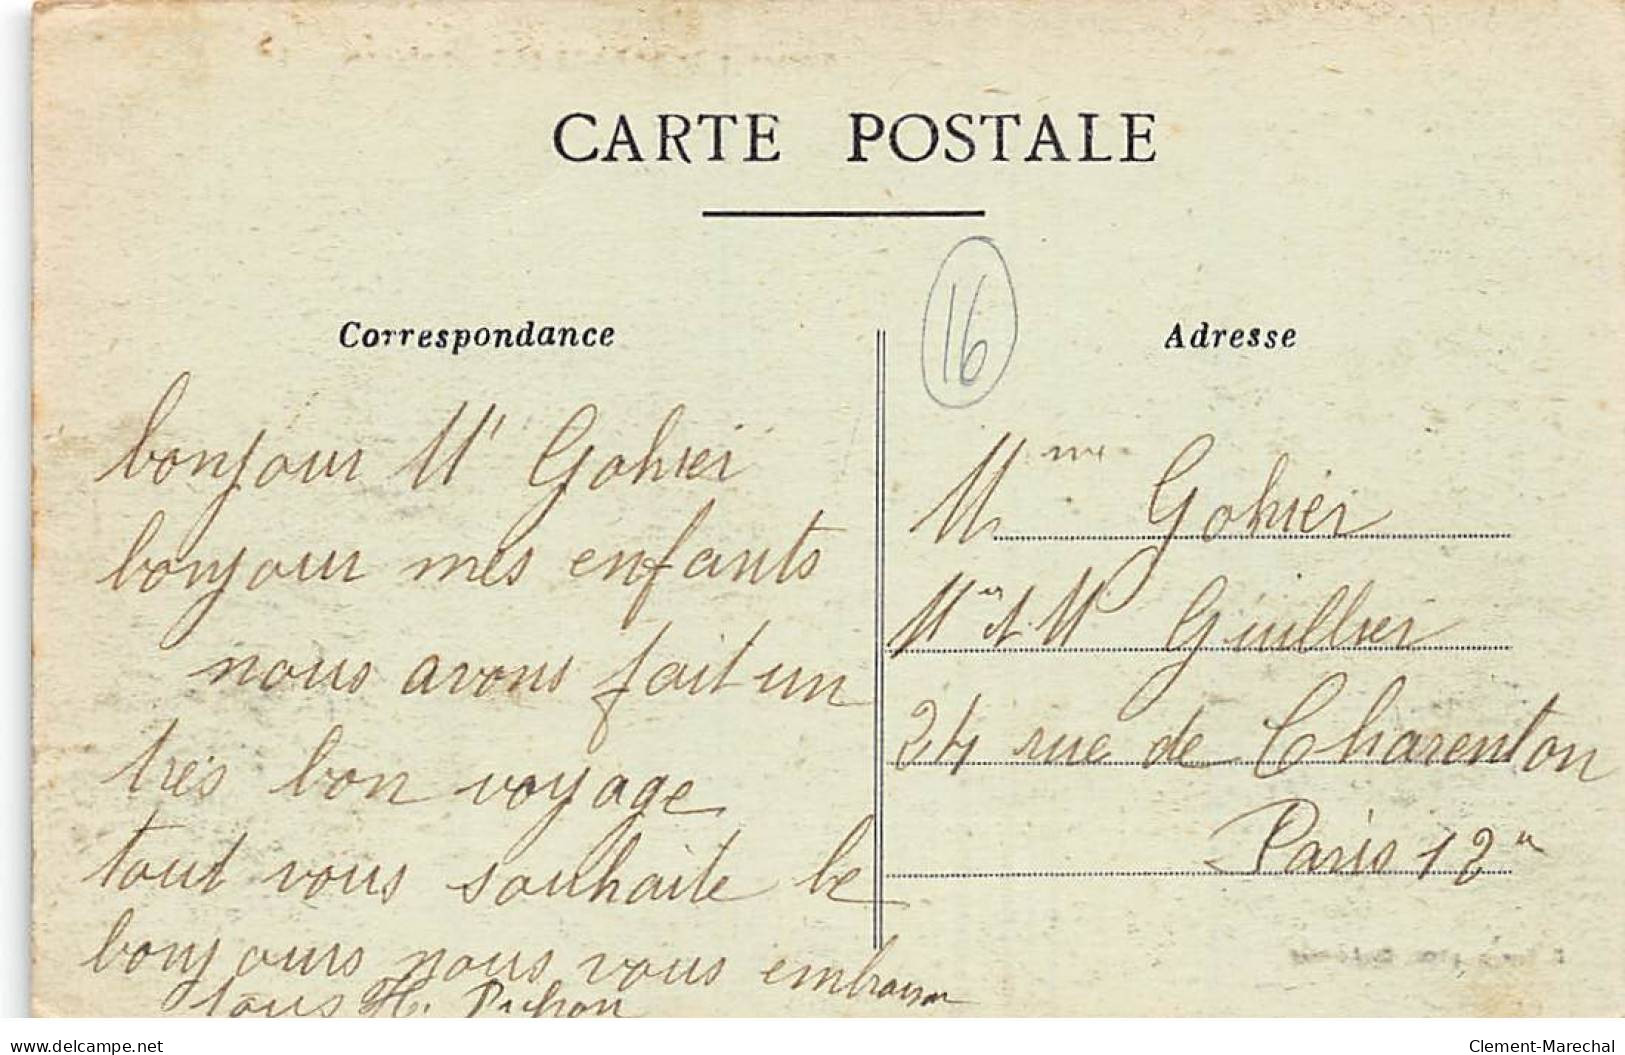 CARTE POSTALE
16
Correspondance
Adresse
bonjour Mr Gohier
bonjour mes enfants
nous avons fait un
très bon voyage
tout vous souhaite le
bonjours nous vous embrasson
tous H. Pichon
Mme Gohier
Mr et Me Guillier
24 rue de Charenton
Paris 12e
www.delcampe.net
Clement-Marechal